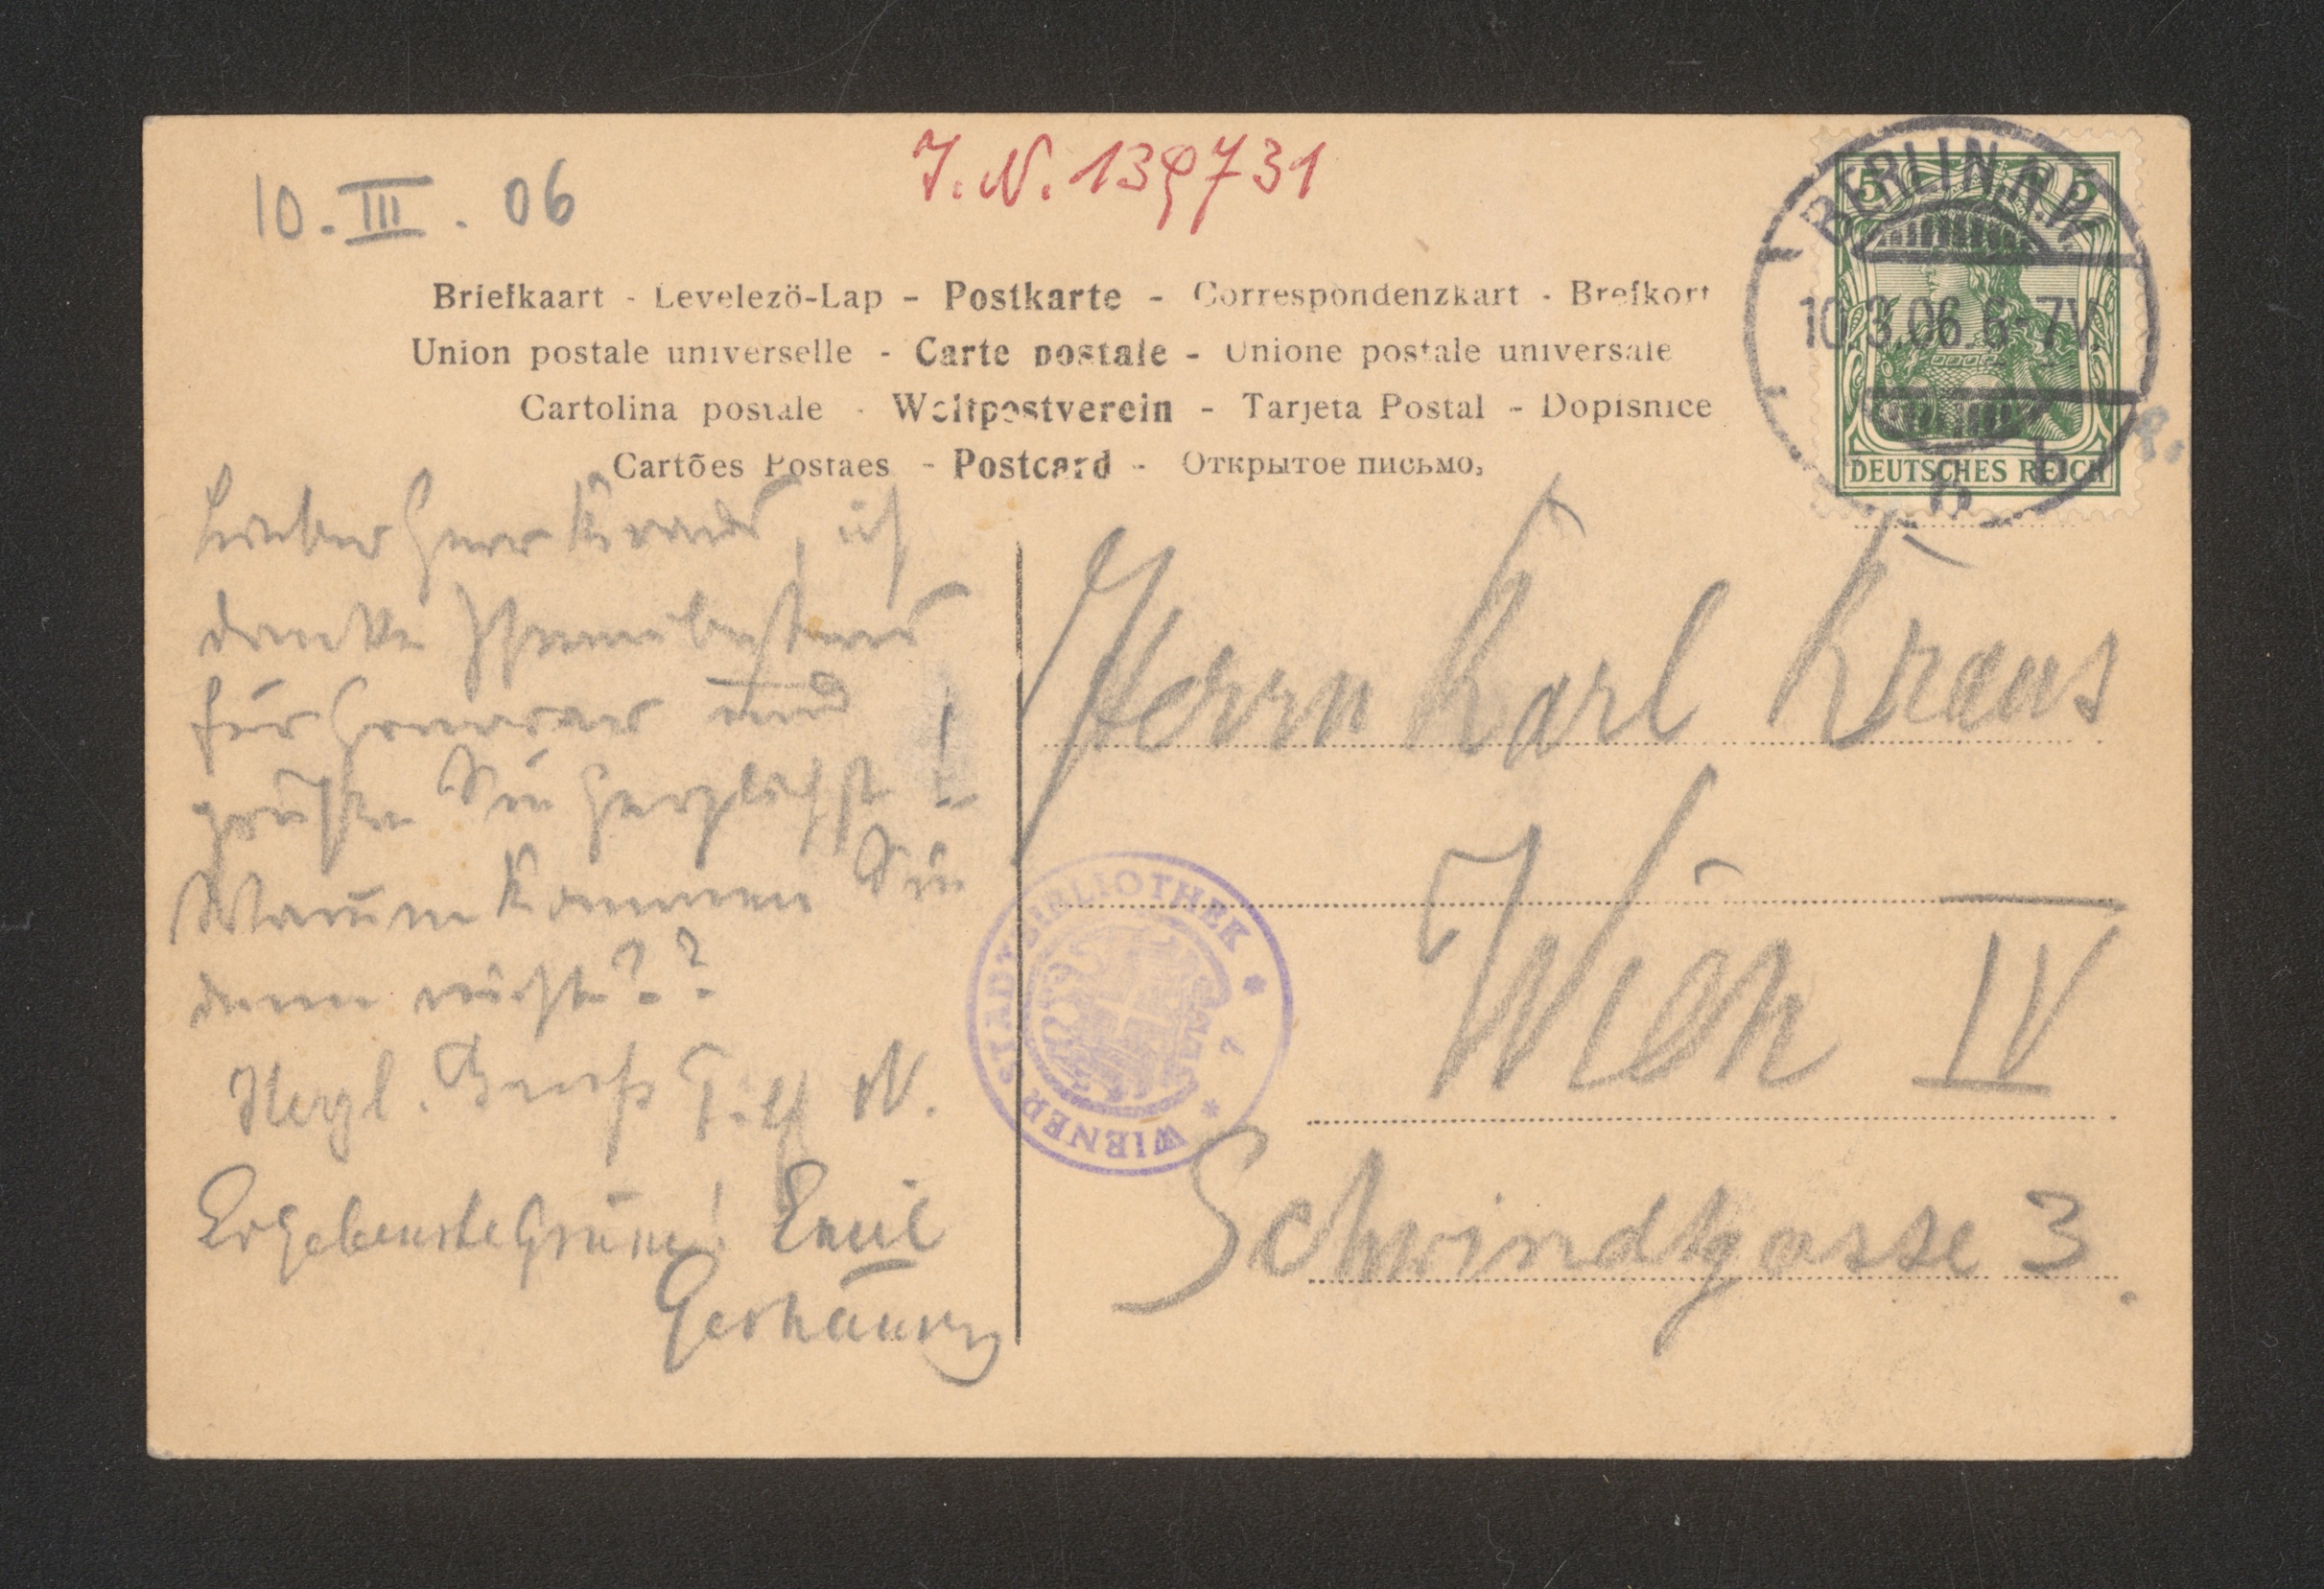 10. III. 06
J. N. 139731
Briefkaart - Levelezö-Lap - Postkarte - Correspondenzkart - Brefkort
Union postale universelle - Carte postale - Unione postale universale
Cartolina postale - Weltpostverein - Tarjeta Postal - Dopisnice
Cartões Postaes - Postcard - Открытое письмо,
BERLIN. N.W.
10.3.06.6-7V.
5 5
DEUTSCHES REICH
Lieber Herr Kraus, ich
danke Ihnen bestens
für Honorar und
grüße Sie herzlichst!
Warum kommen Sie
denn nicht??
Herzl. Gruß
Ergebenste Emil
Gerhäuser
Herrn Karl Kraus
Wien IV
Schwindgasse 3.
WIENER STADTBIBLIOTHEK * 7 *